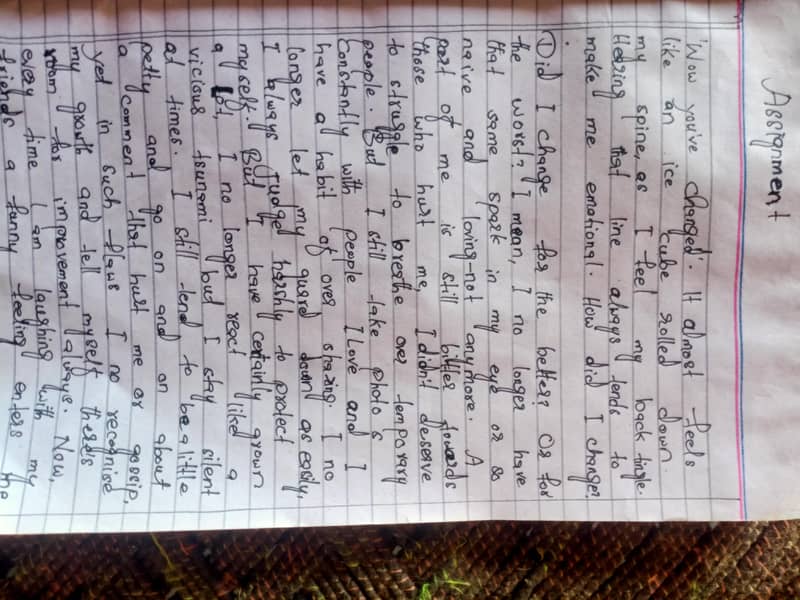 Assignment
'Wow you've changed'. It almost feels
like an ice cube rolled down
my spine, as I feel my back tingle.
Hearing that line always tends to
make me emotional. How did I change?
Did I change for the better? Or for
the worst? I mean, I no longer have
that same spark in my eye or so
naive and loving-not anymore. A
part of me is still bitter towards
those who hurt me, I didn't deserve
to struggle to breathe over temporary
people. But I still take photos
Constantly with people I Love and I
have a habit of over sharing. I no
longer let my guard down as easily,
I always Judge harshly to protect
myself. But I have certainly grown
a lot, I no longer react like a
vicious tsunami but I stay silent
at times. I still tend to be a little
petty and go on and on about
a comment that hurt me or gossip,
yet in such flaws I no recognise
my growth and tell myself there's
room for improvement always. Now,
every time I am laughing with my
friends a funny feeling enters the